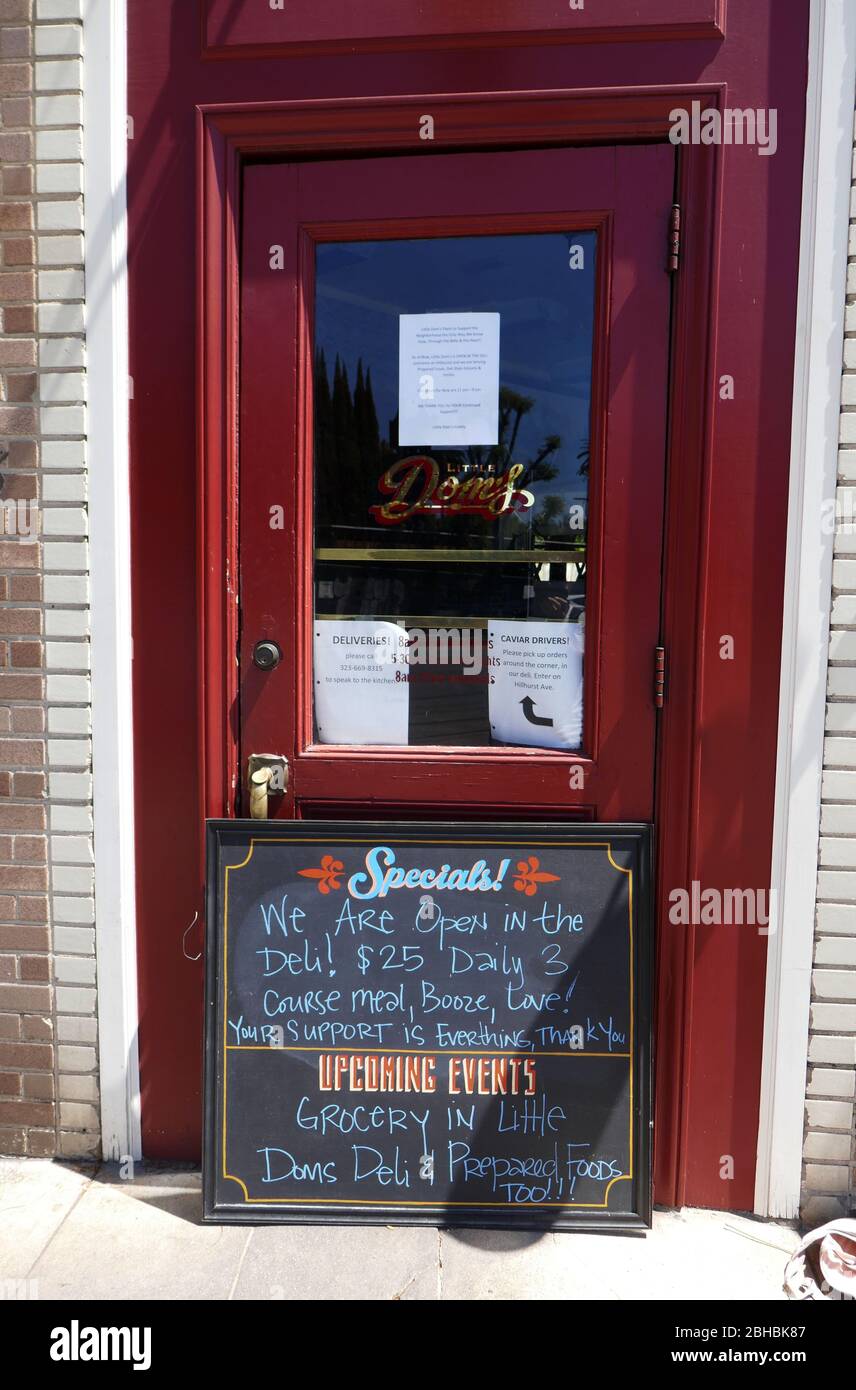 Little Dom's Plans to Support the
LITTLE
Dom's
DELIVERIES!
please call
323-669-8315
to speak to the kitchen
8am
5:30
8am
CAVIAR DRIVERS!
Please pick up orders
around the corner, in
our deli. Enter on
Hillhurst Ave.
Specials!
We Are Open in the
Deli! $25 Daily 3
Course meal, Booze, Love!
Your Support is Everthing, Thank You
UPCOMING EVENTS
Grocery in Little
Doms Deli & Prepared Foods
Too!!!
alamy
Image ID: 2BHBK87
www.alamy.com